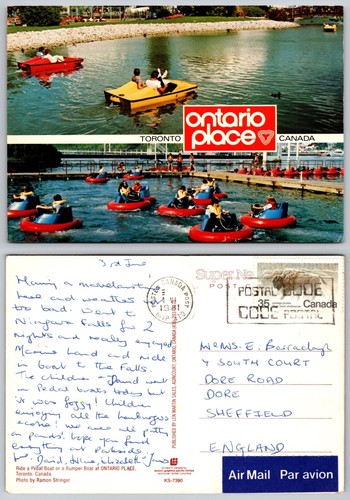 ontario
place
TORONTO CANADA
3rd June
Having a marvellous time
here and weather is not
too bad. Went to
Niagara Falls for 2
nights and really enjoyed
Marine Land and ride
in boat to the Falls.
The children + David went
in Pedal boats today but
it was foggy! Children
enjoying all the hamburgers
of course! We were all putting
on pounds! hope you find
everything at
love, David, Elizabeth, James
Ride a Pedal Boat or a Bumper Boat at ONTARIO PLACE,
Toronto, Canada.
Photo by Ramon Stringer
KS-7390
PUBLISHED BY LEN MARTIN SALES, AGINCOURT, ONTARIO, CANADA
CANADA POST
1981
POSTAL CODE
CODE POSTAL
35
Canada
Mr & Mrs. E.
4 SOUTH COURT
DORE ROAD
DORE
SHEFFIELD
ENGLAND
Air Mail Par avion